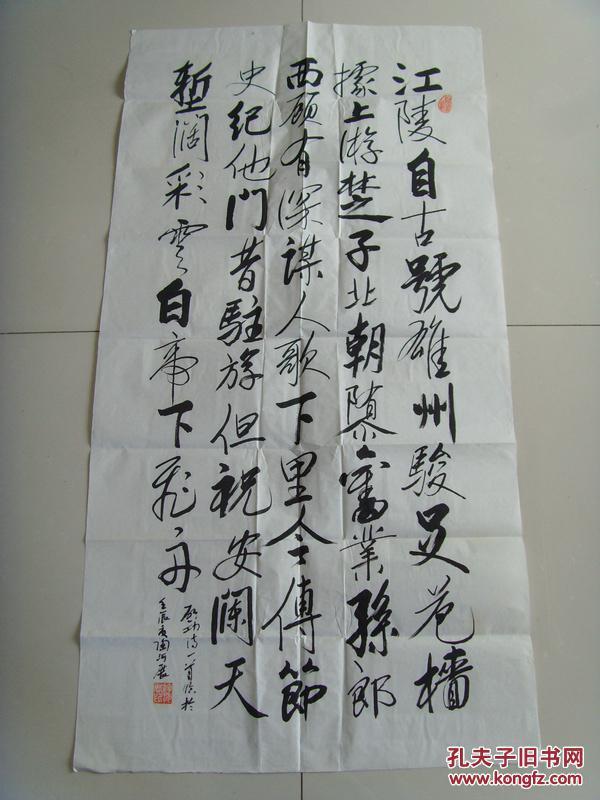 江陵自古號雄州駿足危檣
據上游楚子北朝隳舊業孫郎
西顧有深謀人歌下里今傳節
史紀他門昔駐旂但祝安瀾天
塹闊彩雲白帝下飛舟
啟功詩一首
壬辰夏
孔夫子旧书网
www.kongfz.com